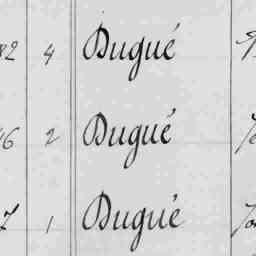 82 4 Dugué
16 2 Dugué
7 1 Dugué